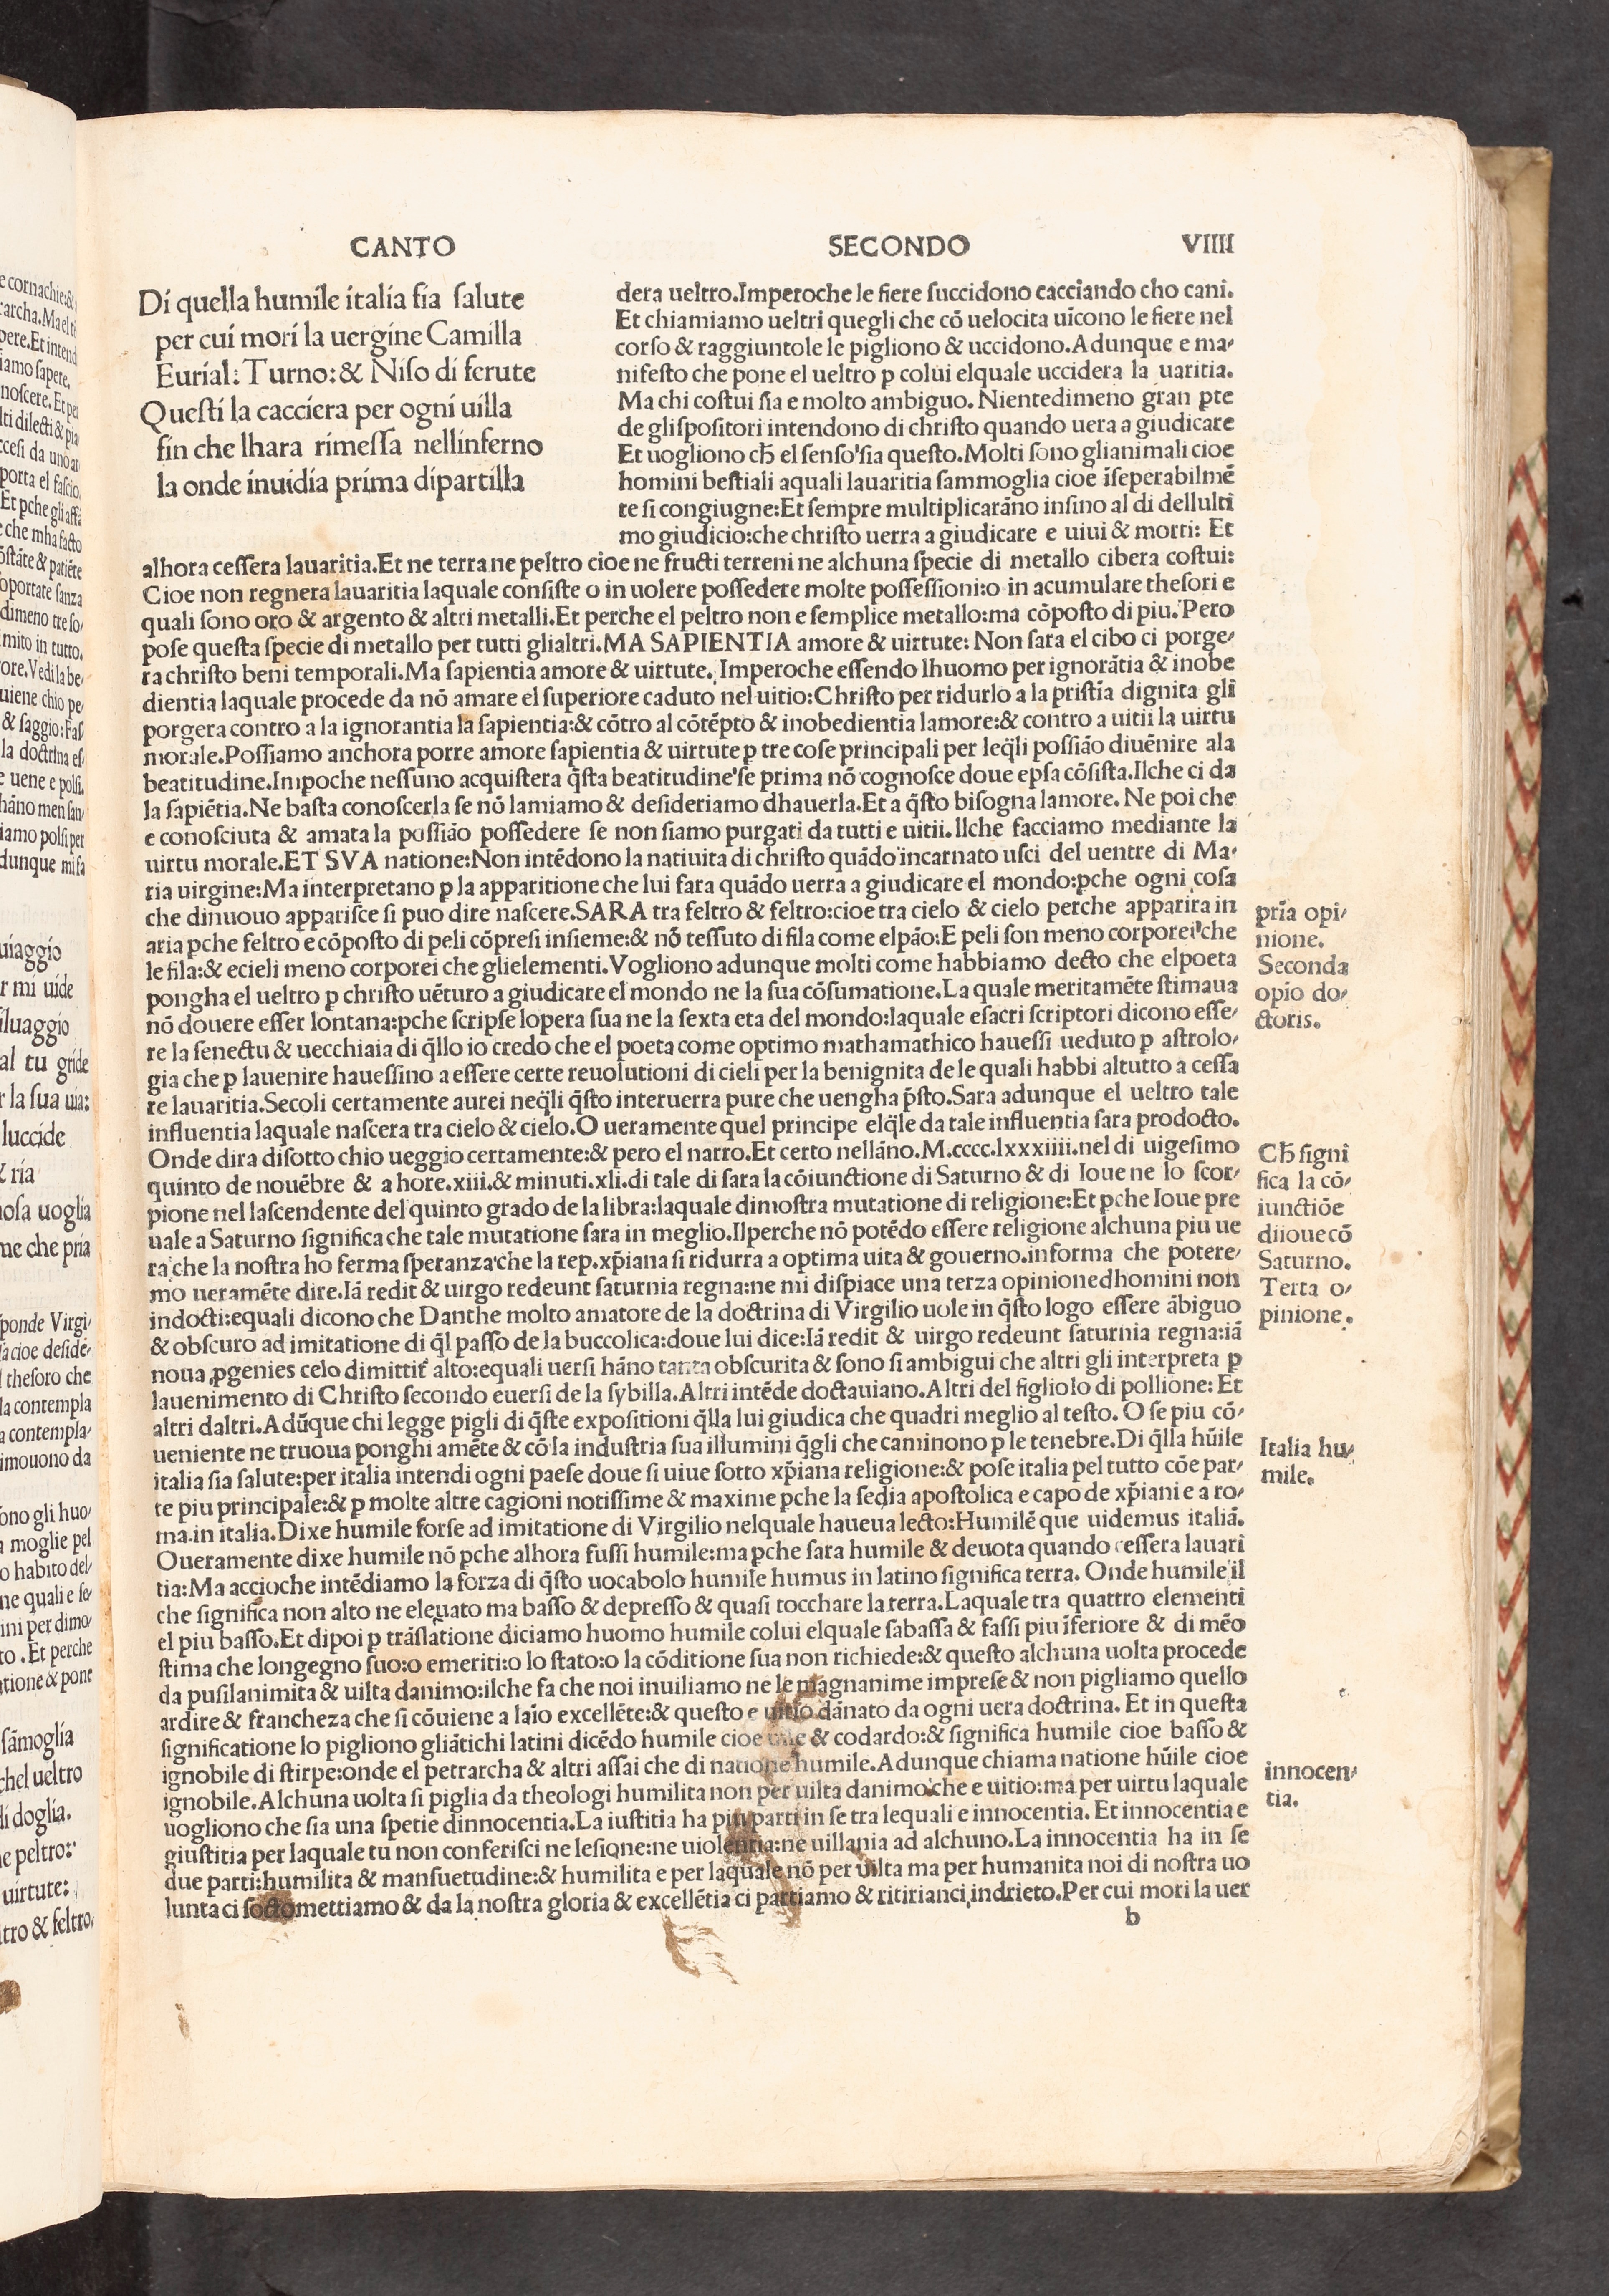 CANTO SECONDO VIIII
Di quella humile italia fia salute
per cui mori la uergine Camilla
Eurial: Turno: & Niso di ferute
Questi la cacciera per ogni uilla
fin che lhara rimessa nellinferno
la onde inuidia prima dipartilla
dera ueltro.Imperoche le fiere succidono cacciando cho cani.
Et chiamiamo ueltri quegli che cō uelocita uīcono le fiere nel
corso & raggiuntole le pigliono & uccidono.Adunque e ma-
nifesto che pone el ueltro ꝑ colui elquale uccidera la uaritia.
Ma chi costui sia e molto ambiguo. Nientedimeno gran ꝑte
de glispositori intendono di christo quando uera a giudicare
Et uogliono cħ el senso sia questo.Molti sono glianimali cioe
homini bestiali aquali lauaritia sammoglia cioe īseperabilmē
te si congiugne:Et sempre multiplicarāno insino al di dellulti
mo giudicio:che christo uerra a giudicare e uiui & morti: Et
alhora cessera lauaritia.Et ne terra ne peltro cioe ne fructi terreni ne alchuna specie di metallo cibera costui:
Cioe non regnera lauaritia laquale consiste o in uolere possedere molte possessioni:o in acumulare thesori e
quali sono oro & argento & altri metalli.Et perche el peltro non e semplice metallo:ma cōposto di piu. Pero
pose questa specie di metallo per tutti glialtri.MA SAPIENTIA amore & uirtute: Non sara el cibo ci porge-
ra christo beni temporali.Ma sapientia amore & uirtute. Imperoche essendo lhuomo per ignorātia & inobe
dientia laquale procede da nō amare el superiore caduto nel uitio:Christo per ridurlo a la pristīa dignita gli
porgera contro a la ignorantia la sapientia:& cōtro al cōtēpto & inobedientia lamore:& contro a uitii la uirtu
morale.Possiamo anchora porre amore sapientia & uirtute ꝑ tre cose principali per leq̄li possiāo diuēnire ala
beatitudine.Imꝑoche nessuno acquistera q̄sta beatitudine se prima nō cognosce doue epsa cōsista.Ilche ci da
la sapiētia.Ne basta conoscerla se nō lamiamo & desideriamo dhauerla.Et a q̄sto bisogna lamore. Ne poi che
e conosciuta & amata la possiāo possedere se non siamo purgati da tutti e uitii.Ilche facciamo mediante la
uirtu morale.ET SVA natione:Non intēdono la natiuita di christo quādo incarnato usci del uentre di Ma-
ria uirgine:Ma interpretano ꝑ la apparitione che lui fara quādo uerra a giudicare el mondo:ꝑche ogni cosa
che dinuouo apparisce si puo dire nascere.SARA tra feltro & feltro:cioe tra cielo & cielo perche apparira in
aria ꝑche feltro e cōposto di peli cōpresi insieme:& nō tessuto di fila come elpāo:E peli son meno corporei che
le fila:& ecieli meno corporei che glielementi.Vogliono adunque molti come habbiamo decto che elpoeta
pongha el ueltro ꝑ christo uēturo a giudicare el mondo ne la sua cōsumatione.La quale meritamēte stimaua
nō douere esser lontana:ꝑche scripse lopera sua ne la sexta eta del mondo:laquale esacri scriptori dicono esse-
re la senectu & uecchiaia di q̄llo io credo che el poeta come optimo mathamathico hauessi ueduto ꝑ astrolo-
gia che ꝑ lauenire hauessino a essere certe reuolutioni di cieli per la benignita de le quali habbi altutto a cessa
re lauaritia.Secoli certamente aurei neq̄li q̄sto interuerra pure che uengha p̄sto.Sara adunque el ueltro tale
influentia laquale nascera tra cielo & cielo.O ueramente quel principe elq̄le da tale influentia sara prodocto.
Onde dira disotto chio ueggio certamente:& pero el narro.Et certo nellāno.M.cccc.lxxxiiii.nel di uigesimo
quinto de nouēbre & a hore.xiii.& minuti.xli.di tale di sara la cōiunctione di Saturno & di Ioue ne lo scor-
pione nel lascendente del quinto grado de la libra:laquale dimostra mutatione di religione:Et ꝑche Ioue pre
uale a Saturno significa che tale mutatione sara in meglio.Ilperche nō potēdo essere religione alchuna piu ue
ra che la nostra ho ferma speranza che la rep.xp̄iana si ridurra a optima uita & gouerno.informa che potere-
mo ueramēte dire.Iā redit & uirgo redeunt saturnia regna:ne mi dispiace una terza opinione dhomini non
indocti:equali dicono che Danthe molto amatore de la doctrina di Virgilio uole in q̄sto logo essere ābiguo
& obscuro ad imitatione di q̄l passo de la buccolica:doue lui dice:Iā redit & uirgo redeunt saturnia regna:iā
noua ꝓgenies celo dimittit̄ alto:equali uersi hāno tanta obscurita & sono si ambigui che altri gli interpreta ꝑ
lauenimento di Christo secondo euersi de la sybilla.Altri intēde doctauiano.Altri del figliolo di pollione: Et
altri daltri.Adūque chi legge pigli di q̄ste expositioni q̄lla lui giudica che quadri meglio al testo. O se piu cō-
ueniente ne truoua ponghi amēte & cō la industria sua illumini q̄gli che caminono ꝑ le tenebre.Di q̄lla hūile
italia sia salute:per italia intendi ogni paese doue si uiue sotto xp̄iana religione:& pose italia pel tutto cōe par-
te piu principale:& ꝑ molte altre cagioni notissime & maxime ꝑche la sedia apostolica e capo de xp̄iani e a ro-
ma.in italia.Dixe humile forse ad imitatione di Virgilio nelquale haueua lecto:Humilē que uidemus italiā.
Oueramente dixe humile nō ꝑche alhora fussi humile:ma ꝑche sara humile & deuota quando cessera lauari
tia:Ma accioche intēdiamo la forza di q̄sto uocabolo humile humus in latino significa terra. Onde humile il
che significa non alto ne eleuato ma basso & depresso & quasi tocchare la terra.Laquale tra quattro elementi
el piu basso.Et dipoi ꝑ trāslatione diciamo huomo humile colui elquale sabassa & fassi piu īferiore & di mēo
stima che longegno suo:o emeriti:o lo stato:o la cōditione sua non richiede:& questo alchuna uolta procede
da pusilanimita & uilta danimo:ilche fa che noi inuiliamo ne le magnanime imprese & non pigliamo quello
ardire & francheza che si cōuiene a laīo excellēte:& questo e uitio dānato da ogni uera doctrina. Et in questa
significatione lo pigliono gliātichi latini dicēdo humile cioe uile & codardo:& significa humile cioe basso &
ignobile di stirpe:onde el petrarcha & altri assai che di natione humile.Adunque chiama natione hūile cioe
ignobile.Alchuna uolta si piglia da theologi humilita non per uilta danimo che e uitio:ma per uirtu laquale
uogliono che sia una spetie dinnocentia.La iustitia ha piu parti in se tra lequali e innocentia. Et innocentia e
giustitia per laquale tu non conferisci ne lesione:ne uiolentia:ne uillania ad alchuno.La innocentia ha in se
due parti:humilita & mansuetudine:& humilita e per laquale nō per uilta ma per humanita noi di nostra uo
lunta ci soctomettiamo & da la nostra gloria & excellētia ci partiamo & ritirianci indrieto.Per cui mori la uer
b
prīa opi-
nione.
Seconda
opīo do-
ctoris.
Cħ signi
fica la cō-
iunctiōe
diioue cō
Saturno.
Terta o-
pinione.
Italia hu-
mile.
innocen-
tia.